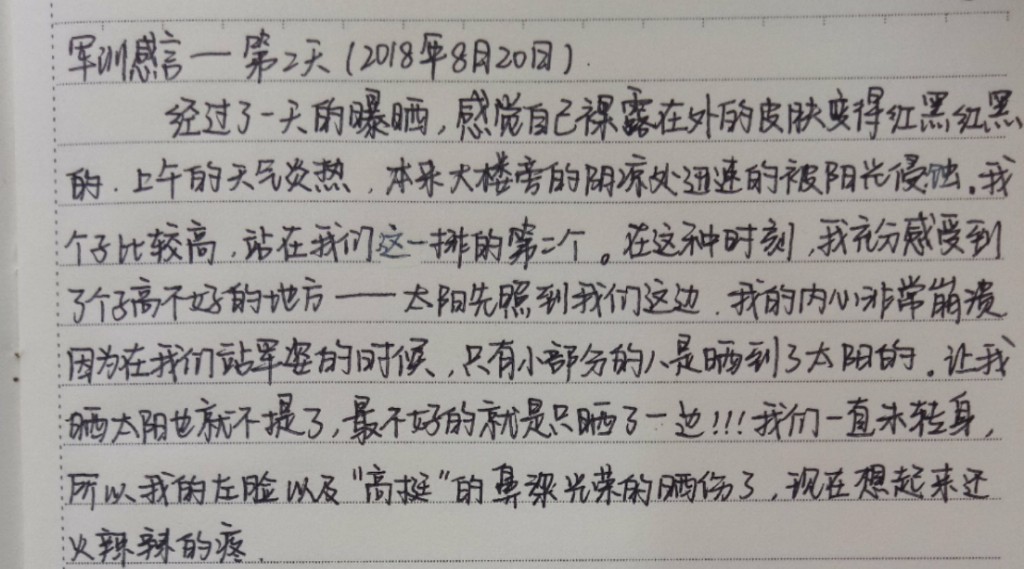 军训感言——第2天(2018年8月20日).
经过了一天的曝晒,感觉自己裸露在外的皮肤变得红黑红黑
的.上午的天气炎热,本来大楼旁的阴凉处迅速的被阳光侵蚀。我
个子比较高,站在我们这一排的第二个。在这种时刻,我充分感受到
了个子高不好的地方——太阳先照到我们这边.我的内心非常崩溃
因为在我们站军姿的时候,只有小部分的人是晒到了太阳的。让我
晒太阳也就不提了,最不好的就是只晒了一边!!!我们一直未转身,
所以我的左脸以及“高挺”的鼻梁光荣的晒伤了,现在想起来还
火辣辣的疼.